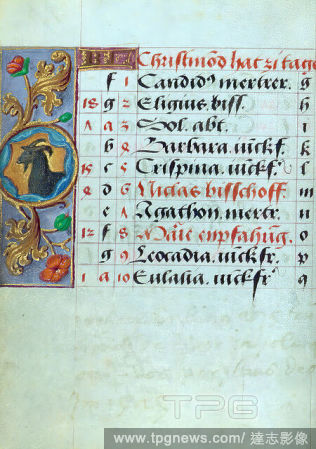 Christmod hat xi tage
f 1 Candid9 mertrer. g
18 g 2 Eligius. biss. h
A 3 Sol. abt. i
b 4 Barbara. iückf. k
15 c 5 Crispina. iückf. l
d 6 Niclas bisschoff. m
e 7 Agathon. mertr. n
12 f 8 Marie enpfahūg. o
g 9 Leocadia. iückfr. p
1 a 10 Eulalia. iückfr q
TPG
www.tpgnews.com/ 達志影像